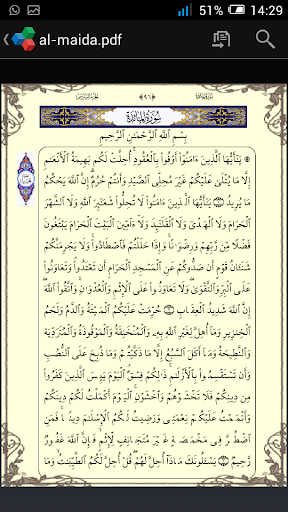 51% 14:29
al-maida.pdf
﴿٩٦﴾
سُورَةُ المَائِدَة
بِسْمِ اللَّهِ الرَّحْمَٰنِ الرَّحِيمِ
يَٰٓأَيُّهَا الَّذِينَ ءَامَنُوٓا۟ أَوْفُوا۟ بِالْعُقُودِ أُحِلَّتْ لَكُم بَهِيمَةُ الْأَنْعَٰمِ
إِلَّا مَا يُتْلَىٰ عَلَيْكُمْ غَيْرَ مُحِلِّى الصَّيْدِ وَأَنتُمْ حُرُمٌ إِنَّ اللَّهَ يَحْكُمُ
مَا يُرِيدُ يَٰٓأَيُّهَا الَّذِينَ ءَامَنُوا۟ لَا تُحِلُّوا۟ شَعَٰٓئِرَ اللَّهِ وَلَا الشَّهْرَ
الْحَرَامَ وَلَا الْهَدْىَ وَلَا الْقَلَٰٓئِدَ وَلَآ ءَآمِّينَ الْبَيْتَ الْحَرَامَ يَبْتَغُونَ
فَضْلًا مِّن رَّبِّهِمْ وَرِضْوَٰنًا وَإِذَا حَلَلْتُمْ فَاصْطَادُوا۟ وَلَا يَجْرِمَنَّكُمْ
شَنَـَٔانُ قَوْمٍ أَن صَدُّوكُمْ عَنِ الْمَسْجِدِ الْحَرَامِ أَن تَعْتَدُوا۟ وَتَعَاوَنُوا۟
عَلَى الْبِرِّ وَالتَّقْوَىٰ وَلَا تَعَاوَنُوا۟ عَلَى الْإِثْمِ وَالْعُدْوَٰنِ وَاتَّقُوا۟ اللَّهَ
إِنَّ اللَّهَ شَدِيدُ الْعِقَابِ حُرِّمَتْ عَلَيْكُمُ الْمَيْتَةُ وَالدَّمُ وَلَحْمُ
الْخِنزِيرِ وَمَآ أُهِلَّ لِغَيْرِ اللَّهِ بِهِۦ وَالْمُنْخَنِقَةُ وَالْمَوْقُوذَةُ وَالْمُتَرَدِّيَةُ
وَالنَّطِيحَةُ وَمَآ أَكَلَ السَّبُعُ إِلَّا مَا ذَكَّيْتُمْ وَمَا ذُبِحَ عَلَى النُّصُبِ
وَأَن تَسْتَقْسِمُوا۟ بِالْأَزْلَٰمِ ذَٰلِكُمْ فِسْقٌ الْيَوْمَ يَئِسَ الَّذِينَ كَفَرُوا۟
مِن دِينِكُمْ فَلَا تَخْشَوْهُمْ وَاخْشَوْنِ الْيَوْمَ أَكْمَلْتُ لَكُمْ دِينَكُمْ
وَأَتْمَمْتُ عَلَيْكُمْ نِعْمَتِى وَرَضِيتُ لَكُمُ الْإِسْلَٰمَ دِينًا فَمَنِ
اضْطُرَّ فِى مَخْمَصَةٍ غَيْرَ مُتَجَانِفٍ لِّإِثْمٍ فَإِنَّ اللَّهَ غَفُورٌ
رَّحِيمٌ يَسْـَٔلُونَكَ مَاذَآ أُحِلَّ لَهُمْ قُلْ أُحِلَّ لَكُمُ الطَّيِّبَٰتُ وَمَا